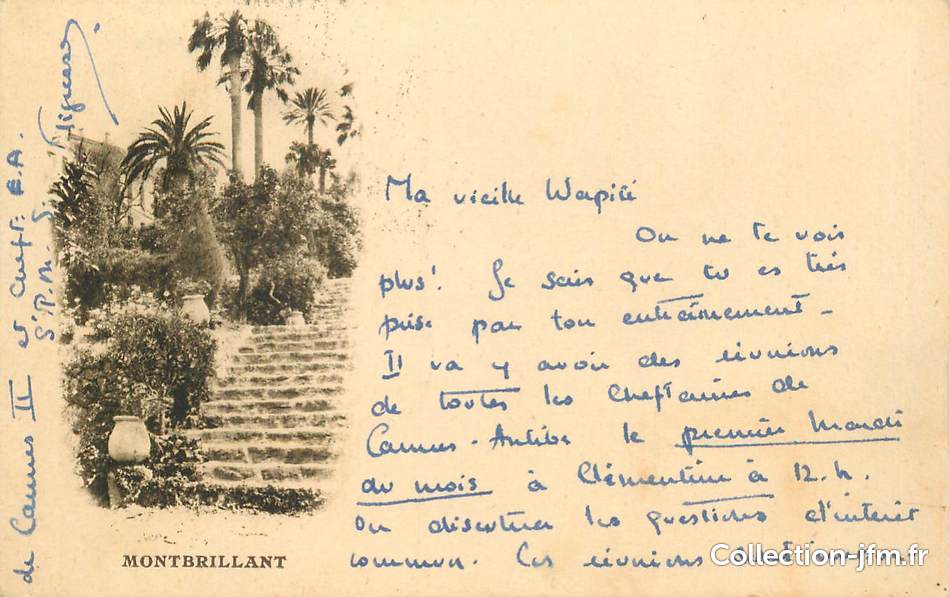 Ma vieille Wapiti
On ne te vois
plus! Je sais que tu es très
prise par ton entraînement -
Il va y avoir des réunions
de toutes les cheftaines de
Cannes-Antibes le premier Mardi
du mois à Clémentine à 12.h.
On discutera les questions d'interêt
commun. Ces réunions
de Cannes II et Cheft: E.A.
MONTBRILLANT
Collection-jfm.fr